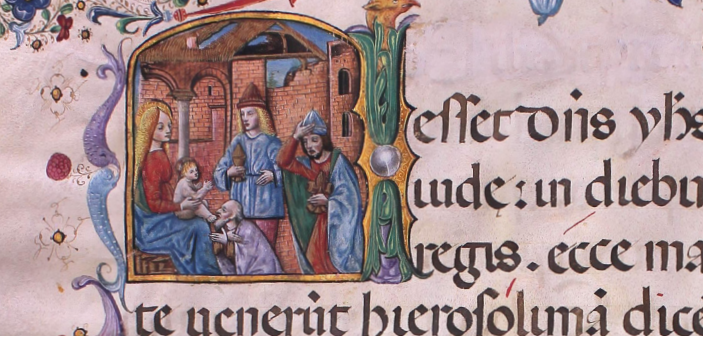 esset dn̄s yh̄s
uidę : in diebu
regis . ecce ma
te uenerūt hierosolimā dicē